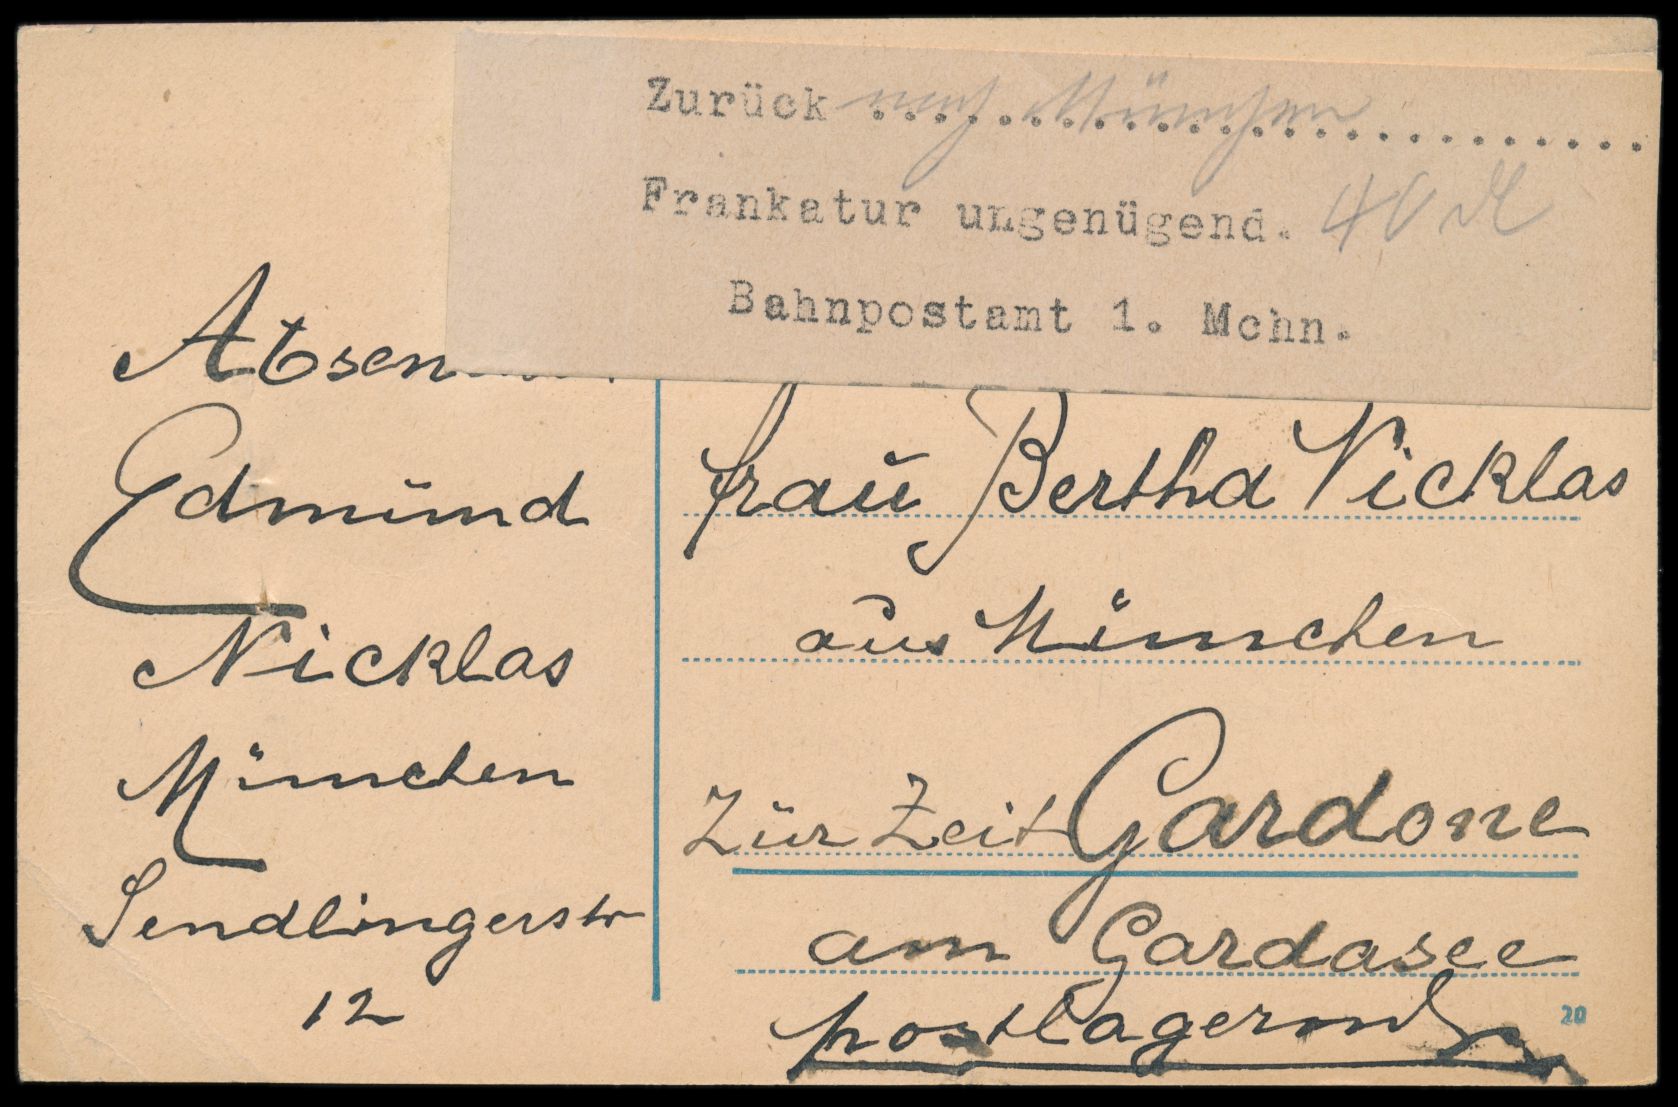 Zurück nach München
Frankatur ungenügend. 40 M
Bahnpostamt 1. Mchn.
Absen
Edmund
Nicklas
München
Sendlingerstr
12
Frau Bertha Nicklas
aus München
Zur Zeit Gardone
am Gardasee
postlagernd
20